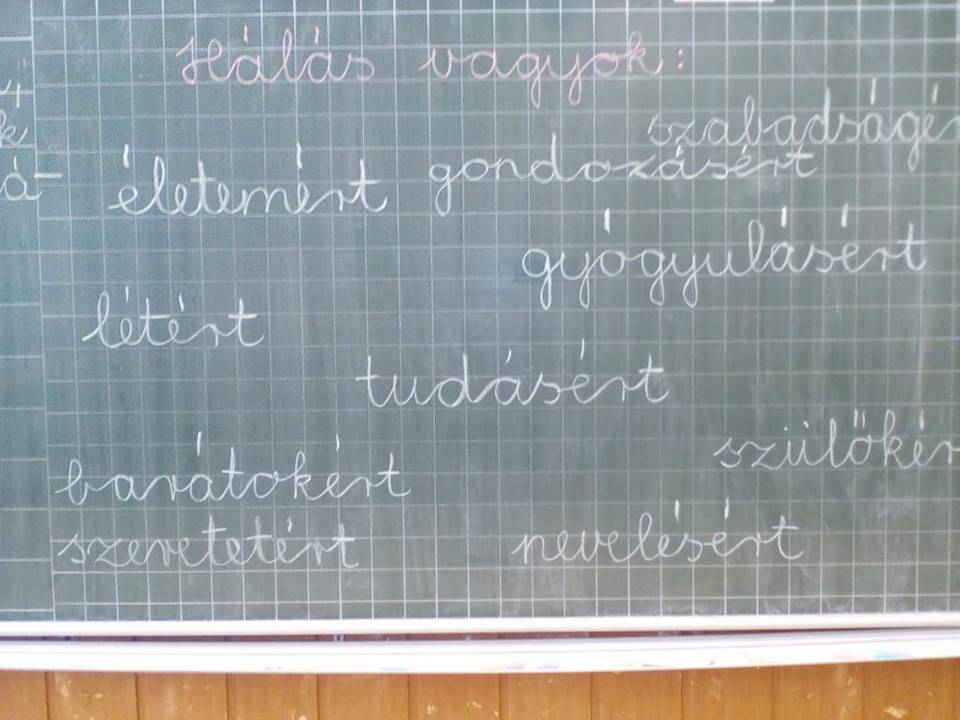 Hálás vagyok:
szabadságér
életemért gondozásért
gyógyulásért
létért
tudásért
szülőkér
barátokért
szeretetért nevelésért